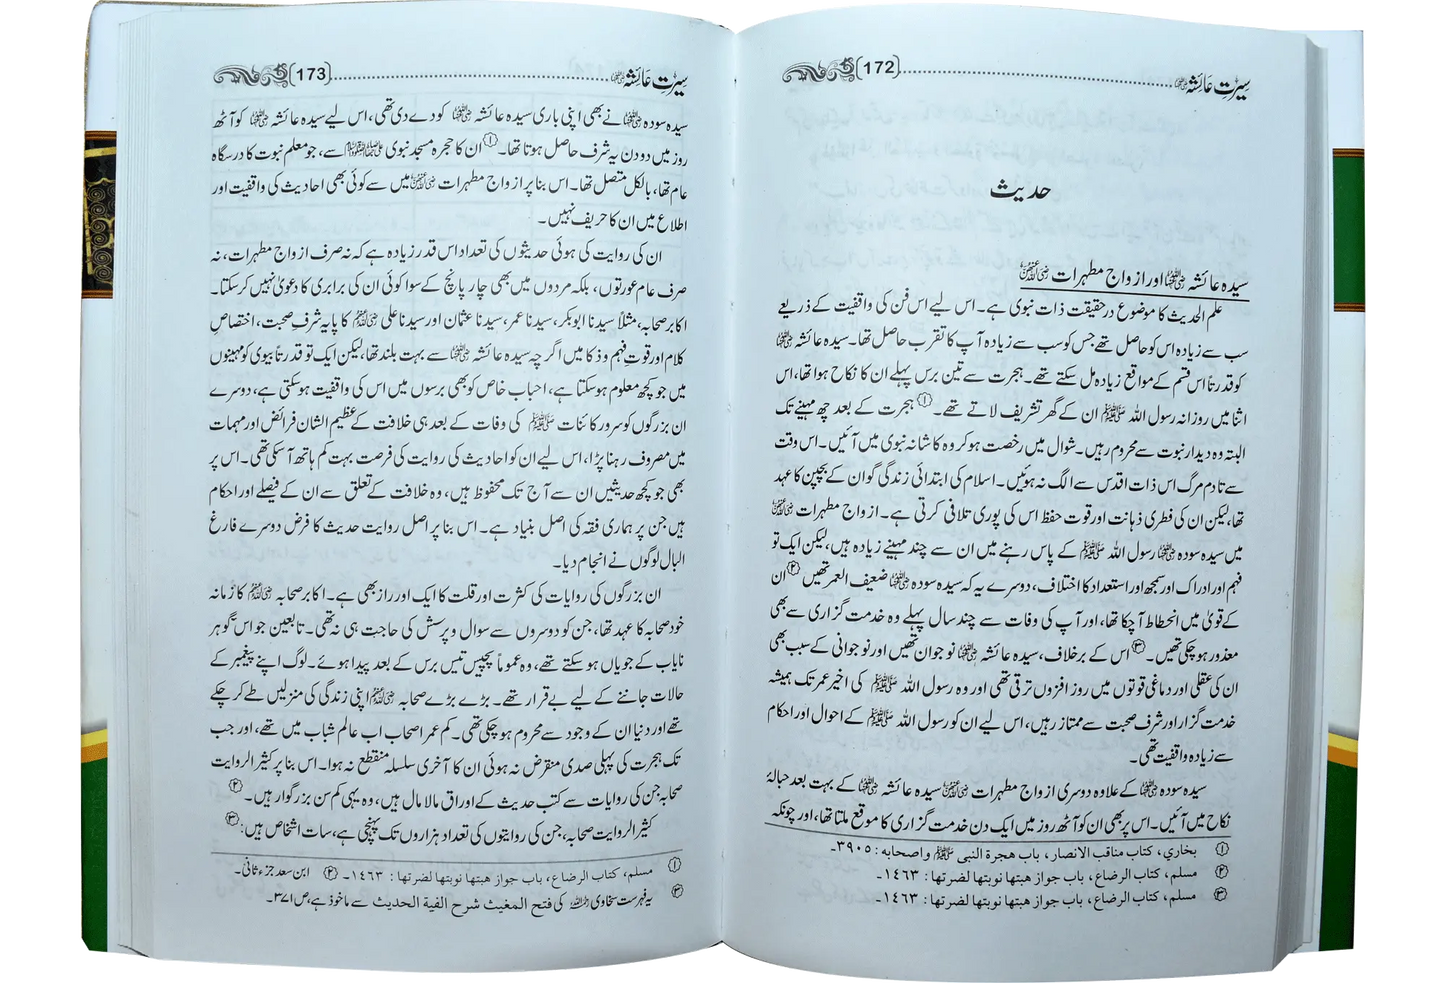 سیرتِ عائشہ رضی اللہ عنہا ۔۔۔۔۔۔ (172)
حدیث
سیدہ عائشہ رضی اللہ عنہا اور ازواج مطہرات رضی اللہ عنہن
علم الحدیث کا موضوع درحقیقت ذات نبوی ہے۔ اس لیے اس فن کی واقفیت کے ذریعے
سب سے زیادہ اس کو حاصل تھے جس کو سب سے زیادہ آپ کا تقرب حاصل تھا۔ سیدہ عائشہ رضی اللہ عنہا
کو قدرتاً اس قسم کے مواقع زیادہ مل سکتے تھے۔ ہجرت سے تین برس پہلے ان کا نکاح ہوا تھا، اس
اثنا میں روزانہ رسول اللہ ﷺ ان کے گھر تشریف لاتے تھے۔ ① ہجرت کے بعد چھ مہینے تک
البتہ وہ دیدار نبوت سے محروم رہیں۔ شوال میں رخصت ہو کر وہ کاشانہ نبوی میں آئیں۔ اس وقت
سے تادم مرگ اس ذات اقدس سے الگ نہ ہوئیں۔ اسلام کی ابتدائی زندگی گو ان کے بچپن کا عہد
تھا، لیکن ان کی فطری ذہانت اور قوت حفظ اس کی پوری تلافی کرتی ہے۔ ازواج مطہرات رضی اللہ عنہن
میں سیدہ سودہ رضی اللہ عنہا رسول اللہ ﷺ کے پاس رہنے میں ان سے چند مہینے زیادہ ہیں، لیکن ایک تو
فہم اور ادراک اور سمجھ اور استعداد کا اختلاف، دوسرے یہ کہ سیدہ سودہ رضی اللہ عنہا ضعیف العمر تھیں ② ان
کے قویٰ میں انحطاط آ چکا تھا، اور آپ کی وفات سے چند سال پہلے وہ خدمت گزاری سے بھی
معذور ہو چکی تھیں۔ ③ اس کے برخلاف، سیدہ عائشہ رضی اللہ عنہا نوجوان تھیں اور نوجوانی کے سبب بھی
ان کی عقلی اور دماغی قوتوں میں روز افزوں ترقی تھی اور وہ رسول اللہ ﷺ کی اخیر عمر تک ہمیشہ
خدمت گزار اور شرف صحبت سے ممتاز رہیں، اس لیے ان کو رسول اللہ ﷺ کے احوال اور احکام
سے زیادہ واقفیت تھی۔
سیدہ سودہ رضی اللہ عنہا کے علاوہ دوسری ازواج مطہرات رضی اللہ عنہن سیدہ عائشہ رضی اللہ عنہا کے بہت بعد حبالۂ
نکاح میں آئیں۔ اس پر بھی ان کو آٹھ روز میں ایک دن خدمت گزاری کا موقع ملتا تھا، اور چونکہ
① بخاري، كتاب مناقب الانصار، باب هجرة النبى ﷺ واصحابه : ٣٩٠٥۔
② مسلم، كتاب الرضاع، باب جواز هبتها نوبتها لضرتها : ١٤٦٣۔
③ مسلم، كتاب الرضاع، باب جواز هبتها نوبتها لضرتها : ١٤٦٣۔
سیرتِ عائشہ رضی اللہ عنہا ۔۔۔۔۔۔ (173)
سیدہ سودہ رضی اللہ عنہا نے بھی اپنی باری سیدہ عائشہ رضی اللہ عنہا کو دے دی تھی، اس لیے سیدہ عائشہ رضی اللہ عنہا کو آٹھ
روز میں دو دن یہ شرف حاصل ہوتا تھا۔ ① ان کا حجرہ مسجد نبوی ﷺ سے، جو معلم نبوت کا درسگاہ
عام تھا، بالکل متصل تھا۔ اس بنا پر ازواج مطہرات رضی اللہ عنہن میں سے کوئی بھی احادیث کی واقفیت اور
اطلاع میں ان کا حریف نہیں۔
ان کی روایت کی ہوئی حدیثوں کی تعداد اس قدر زیادہ ہے کہ نہ صرف ازواج مطہرات، نہ
صرف عام عورتوں، بلکہ مردوں میں بھی چار پانچ کے سوا کوئی ان کی برابری کا دعویٰ نہیں کر سکتا۔
اکابر صحابہ، مثلاً سیدنا ابوبکر، سیدنا عمر، سیدنا عثمان اور سیدنا علی رضی اللہ عنہم کا پایہ شرفِ صحبت، اختصاصِ
کلام اور قوتِ فہم و ذکا میں اگرچہ سیدہ عائشہ رضی اللہ عنہا سے بہت بلند تھا، لیکن ایک تو قدرتاً بیوی کو مہینوں
میں جو کچھ معلوم ہو سکتا ہے، احباب خاص کو بھی برسوں میں اس کی واقفیت ہو سکتی ہے، دوسرے
ان بزرگوں کو سرور کائنات ﷺ کی وفات کے بعد ہی خلافت کے عظیم الشان فرائض اور مہمات
میں مصروف رہنا پڑا، اس لیے ان کو احادیث کی روایت کی فرصت بہت کم ہاتھ آ سکتی تھی۔ اس پر
بھی جو کچھ حدیثیں ان سے آج تک محفوظ ہیں، وہ خلافت کے تعلق سے ان کے فیصلے اور احکام
ہیں جن پر ہماری فقہ کی اصل بنیاد ہے۔ اس بنا پر اصل روایت حدیث کا فرض دوسرے فارغ
البال لوگوں نے انجام دیا۔
ان بزرگوں کی روایات کی کثرت اور قلت کا ایک اور راز بھی ہے۔ اکابر صحابہ رضی اللہ عنہم کا زمانہ
خود صحابہ کا عہد تھا، جن کو دوسروں سے سوال و پرسش کی حاجت ہی نہ تھی۔ تابعین جو اس گوہر
نایاب کے جویاں ہو سکتے تھے، وہ عموماً پچیس تیس برس کے بعد پیدا ہوئے۔ لوگ اپنے پیغمبر کے
حالات جاننے کے لیے بے قرار تھے۔ بڑے بڑے صحابہ رضی اللہ عنہم اپنی زندگی کی منزلیں طے کر چکے
تھے اور دنیا ان کے وجود سے محروم ہو چکی تھی۔ کم عمر اصحاب اب عالم شباب میں تھے، اور جب
تک ہجرت کی پہلی صدی منقرض نہ ہوئی ان کا آخری سلسلہ منقطع نہ ہوا۔ اس بنا پر کثیر الروایت
صحابہ جن کی روایات سے کتب حدیث کے اوراق مالا مال ہیں، وہ یہی کم سن بزرگوار ہیں۔ ②
کثیر الروایت صحابہ، جن کی روایتوں کی تعداد ہزاروں تک پہنچی ہے، سات اشخاص ہیں: ③
① مسلم، كتاب الرضاع، باب جواز هبتها نوبتها لضرتها : ١٤٦٣۔ ② ابن سعد جزء ثانی۔
③ یہ فہرست سخاوی رحمہ اللہ کی فتح المغيث شرح الفية الحديث سے ماخوذ ہے، ص ٣٧١۔